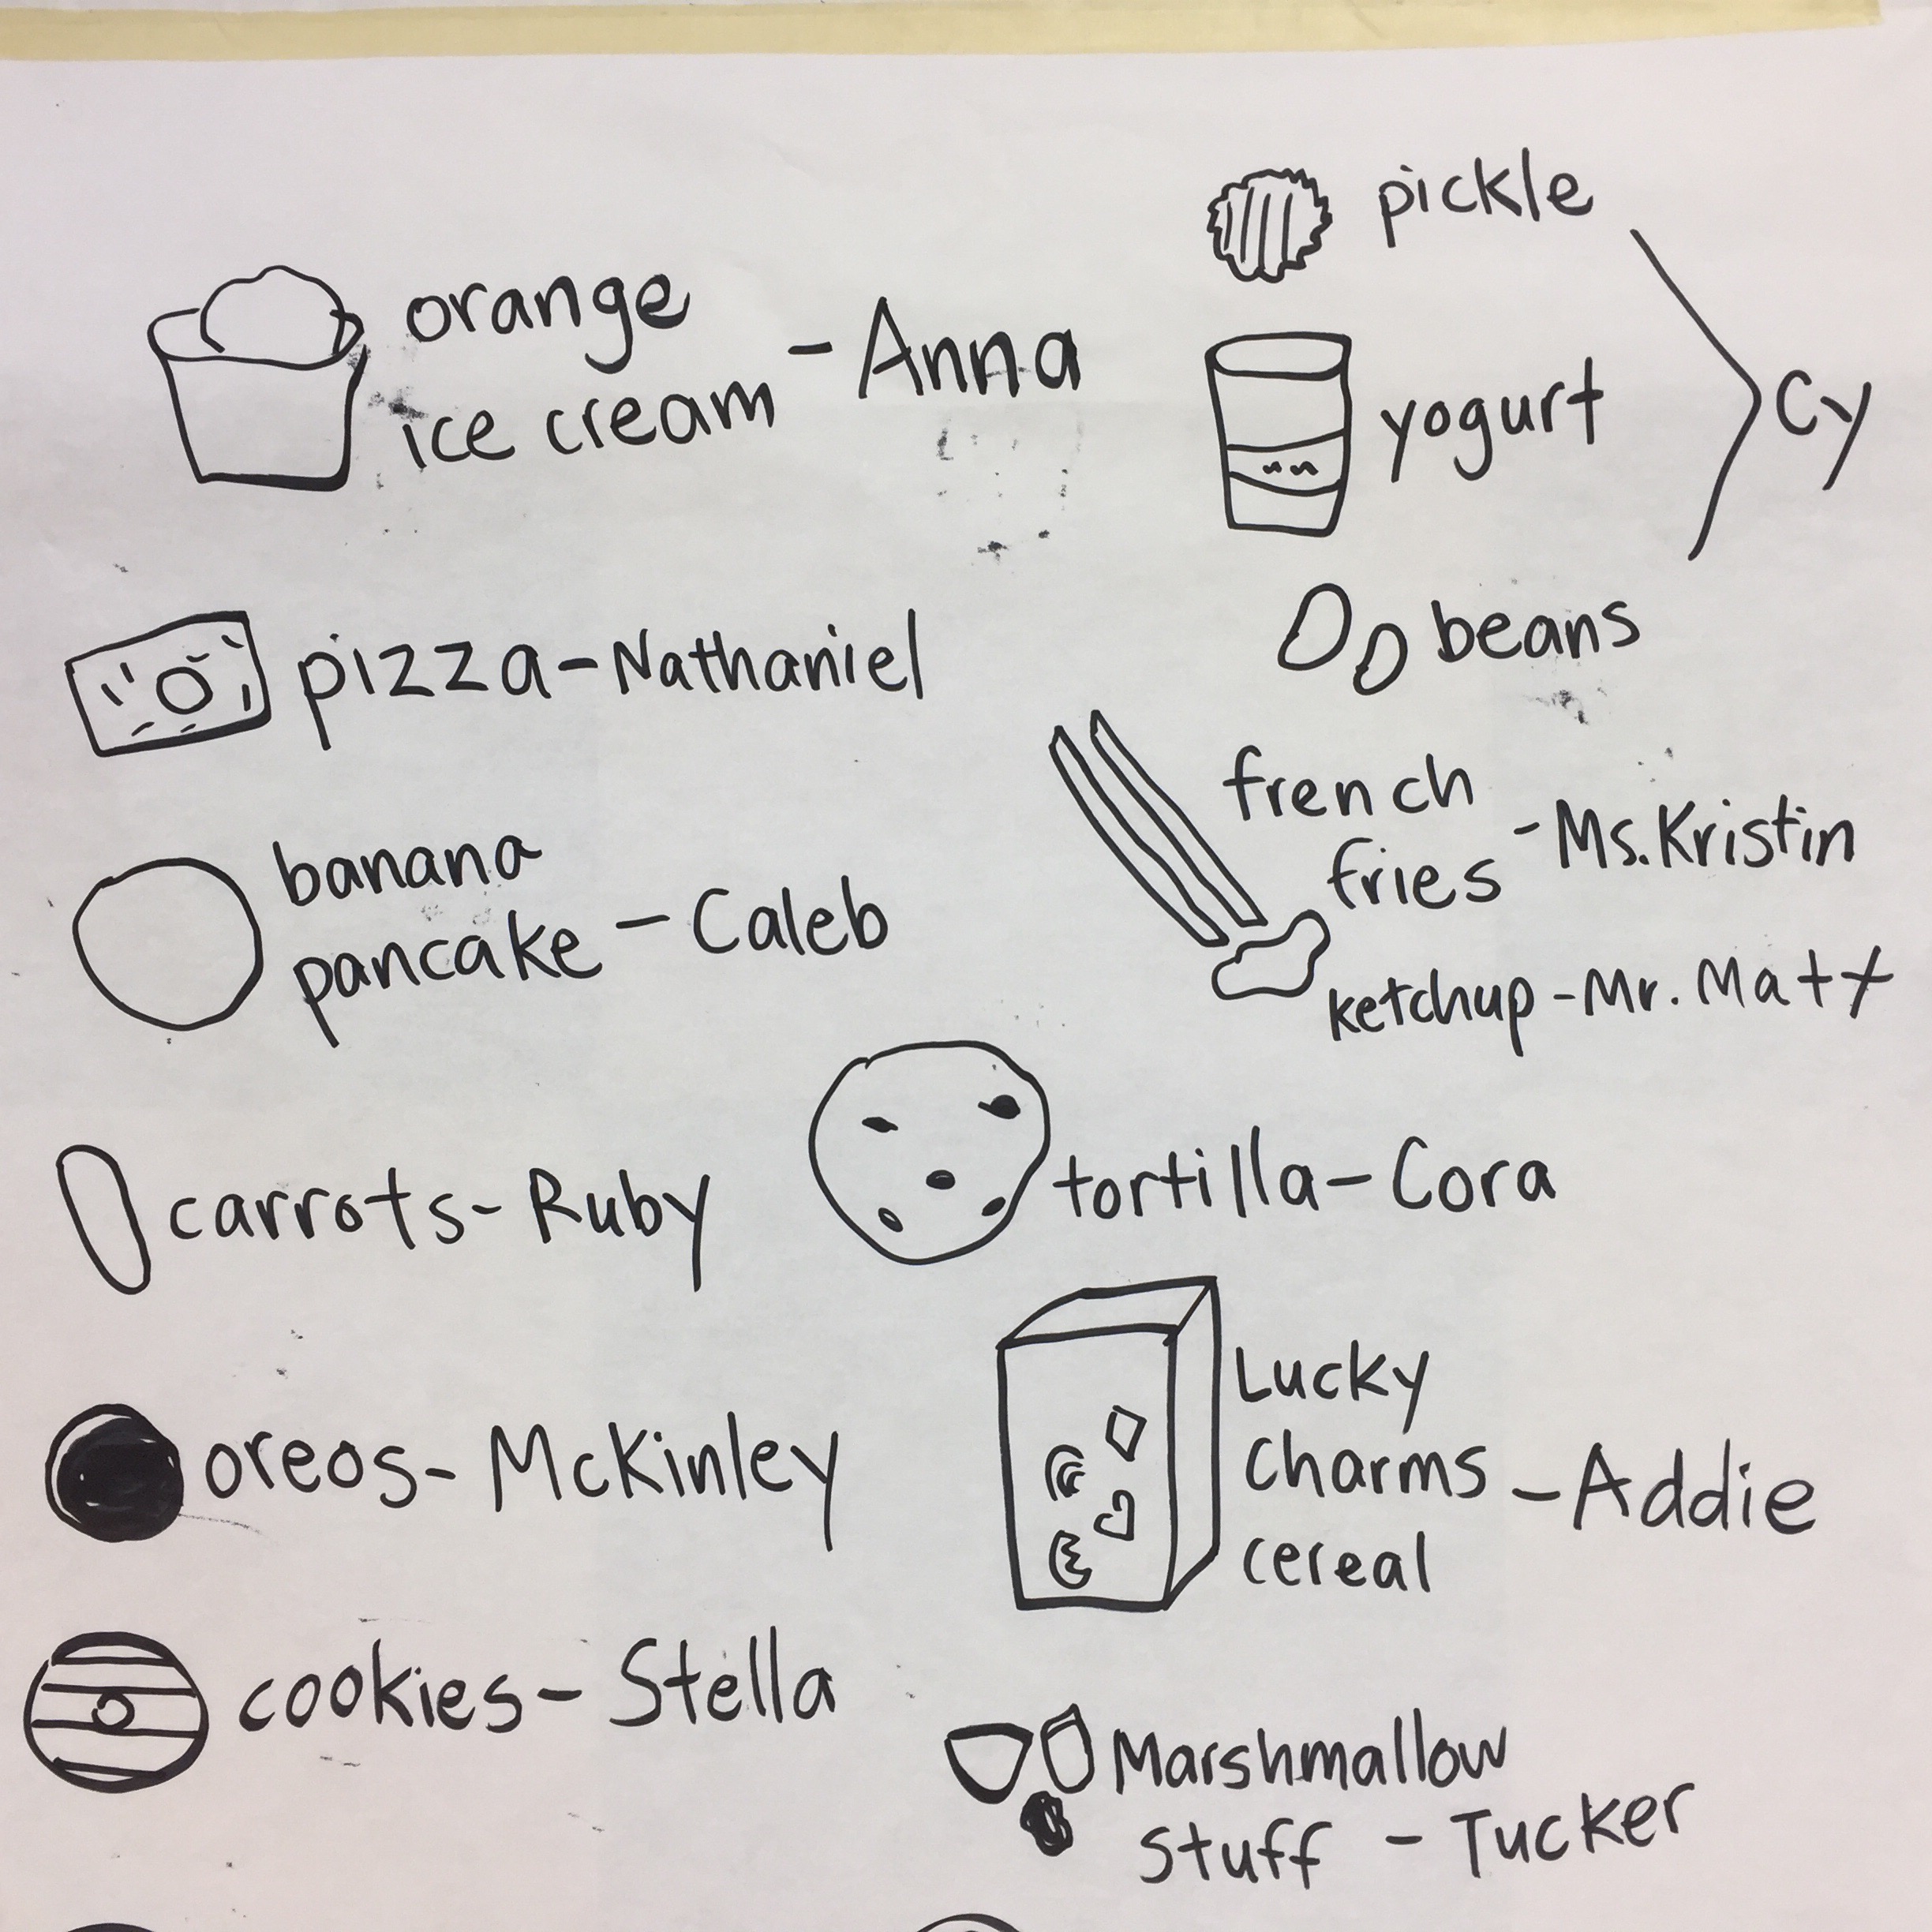 orange
ice cream - Anna
pizza - Nathaniel
banana
pancake - Caleb
carrots - Ruby
oreos - McKinley
cookies - Stella
pickle
yogurt
Cy
beans
french
fries - Ms. Kristin
ketchup - Mr. Matt
tortilla - Cora
Lucky
Charms - Addie
cereal
Marshmallow
Stuff - Tucker